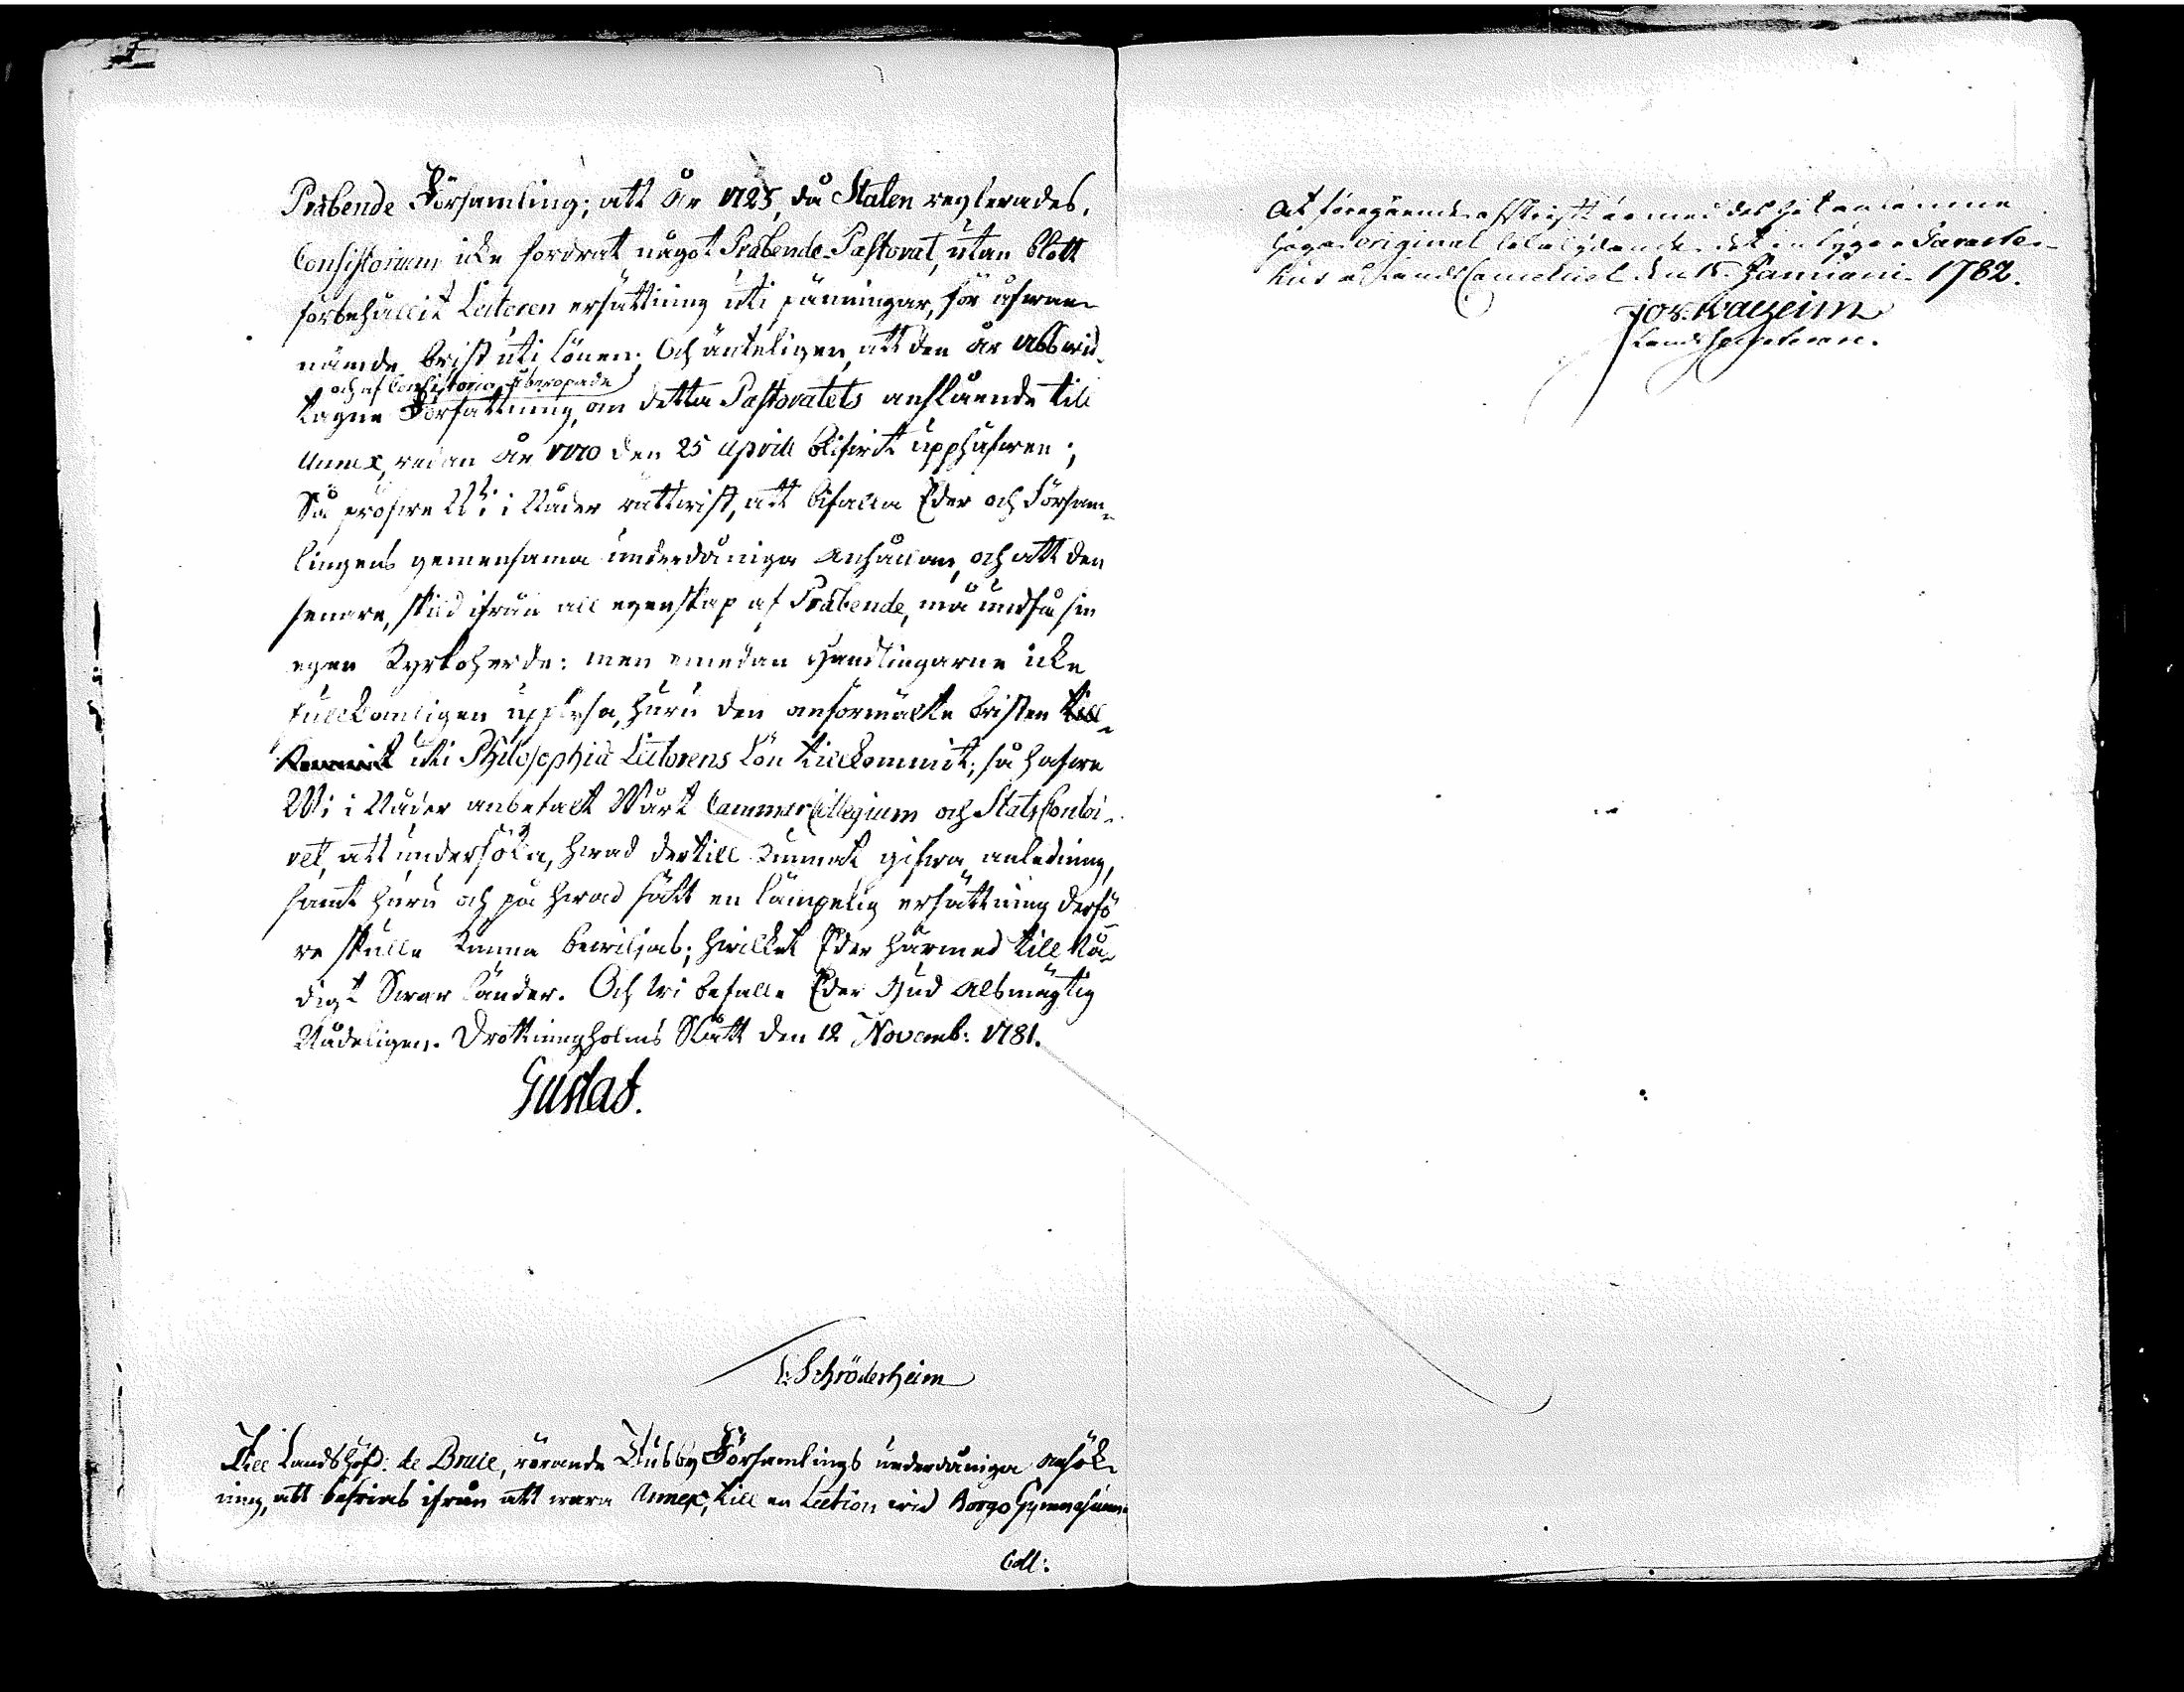 Præbende Församling; att År 1725, då Staten reglerades,
Consistorium icke fordrat något Præbende-Pastorat, utan blott
förbehållit Lectoren ersättning uti pänningar, för ofwan-
nämde brist uti lönen; Och änteligen, att den År 1668 wid-
och af Consistorio åberopade
tagne Författning, om detta Pastoratets anslående till
Annex, redan År 1770 den 25 April blifwit upphäfwen;
Så pröfwe Wi i Nåder rättwist, att bifalla Eder och Försam-
lingens gemensama underdåniga Anhållan, och att den
senare, skild ifrån all egenskap af Præbende, må undfå sin
egen Kyrkoherde: men emedan Handlingarne icke
fullkomligen upplysa, huru den anförmälte bristen till-
kommit uti Philosophiæ Lectorens Lön tillkommit; så hafwe
Wi i Nåder anbefalt Wårt Cammar Collegium och Stats Contoi-
ret, att undersöka, hwad dertill kunnat gifwa anledning,
samt huru och på hwad sätt en lämpelig ersättning derfö-
re skulle kunna bewiljas; hwilket Eder härmed till Nå-
digt Swar länder. Och Wi befalle Eder Gud Alsmägtig
Nådeligen. Drottningholms Slott den 12 Novemb: 1781.
Gustaf.
E: Schröderheim
Till Landshöfd: de Bruce, rörande Husby Församlings underdåniga ansök-
ning, att befrias ifrån att wara Annex, till en Lection wid Borgo Gymnasium.
Coll:
At föregående afskrift är med des
höga original lika lydande, det intygar Tavaste-
hus Lands Cancelliet den 15 Januarii 1782.
Jos.
Lands Secreterare.